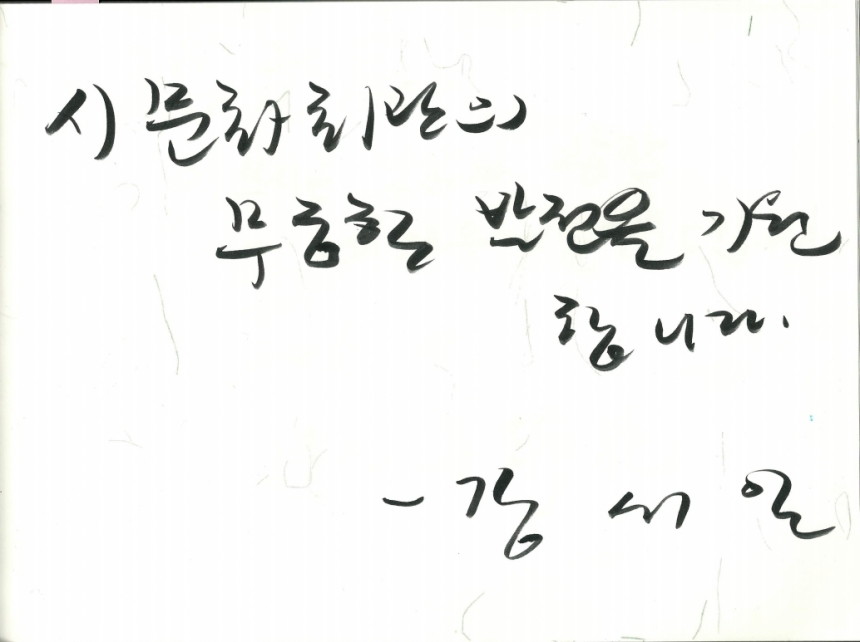 시문화회관의
무궁한 발전을 기원
합니다.
- 강세일